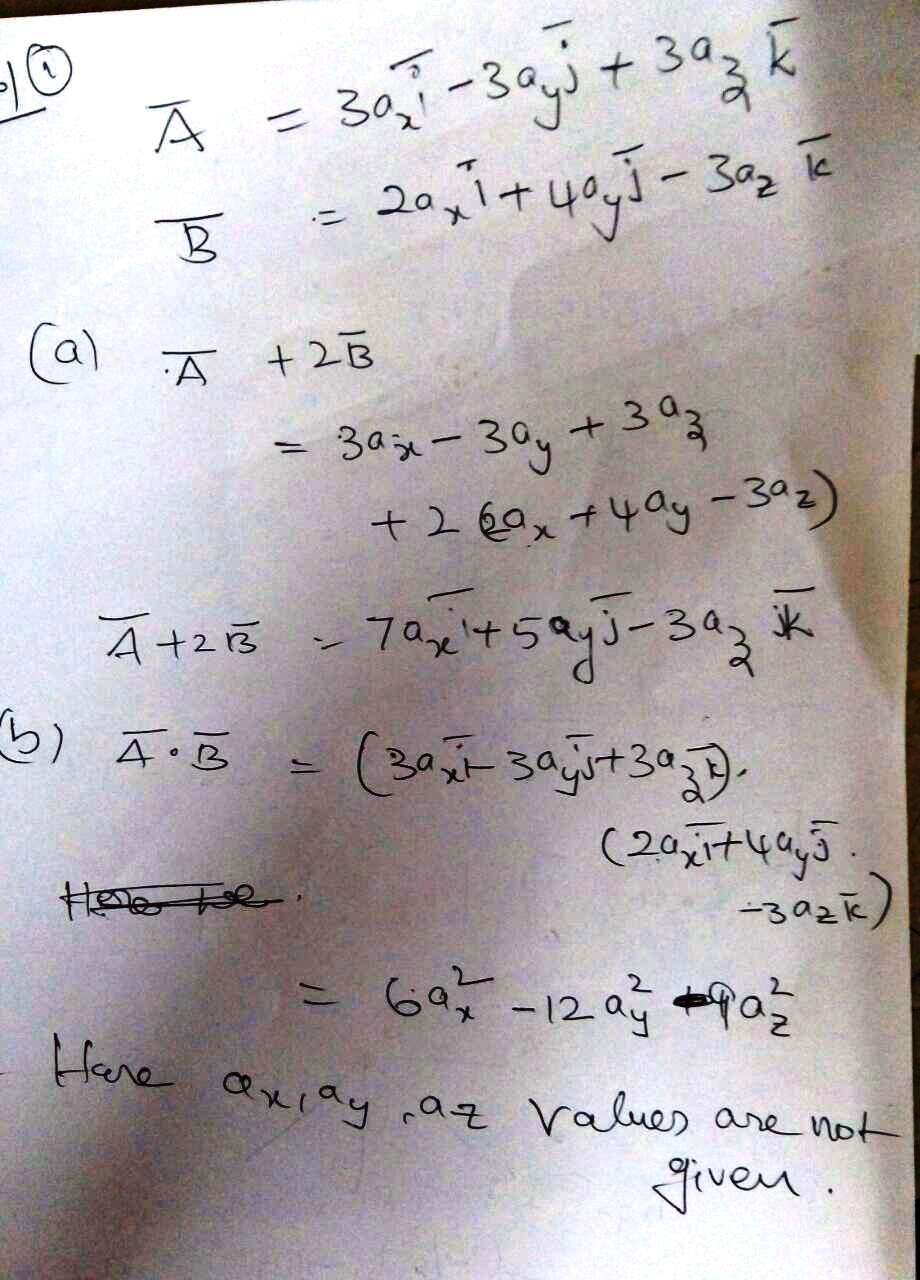 ①
A̅ = 3aₓi̅ - 3a_yj̅ + 3a_z k̅
B̅ = 2aₓi̅ + 4a_yj̅ - 3a_z k̅
(a) A̅ + 2B̅
= 3aₓ - 3a_y + 3a_z
+ 2(2aₓ + 4a_y - 3a_z)
A̅ + 2B̅ = 7aₓi̅ + 5a_yj̅ - 3a_z k̅
(b) A̅ · B̅ = (3aₓi̅ - 3a_yj̅ + 3a_z k̅) ·
(2aₓi̅ + 4a_yj̅
- 3a_z k̅)
= 6aₓ² - 12a_y² - 9a_z²
Here aₓ, a_y, a_z values are not
given.